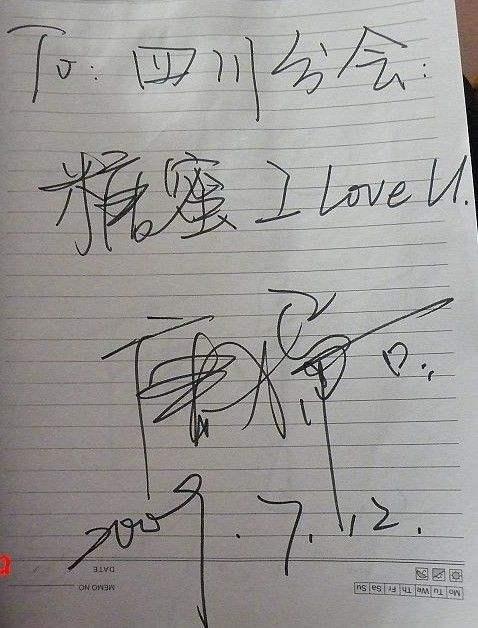 To: 四川分会:
糖蜜 I Love U.
2009.7.12.
DATE
MEMO NO
Mo Tu We Th Fr Sa Su